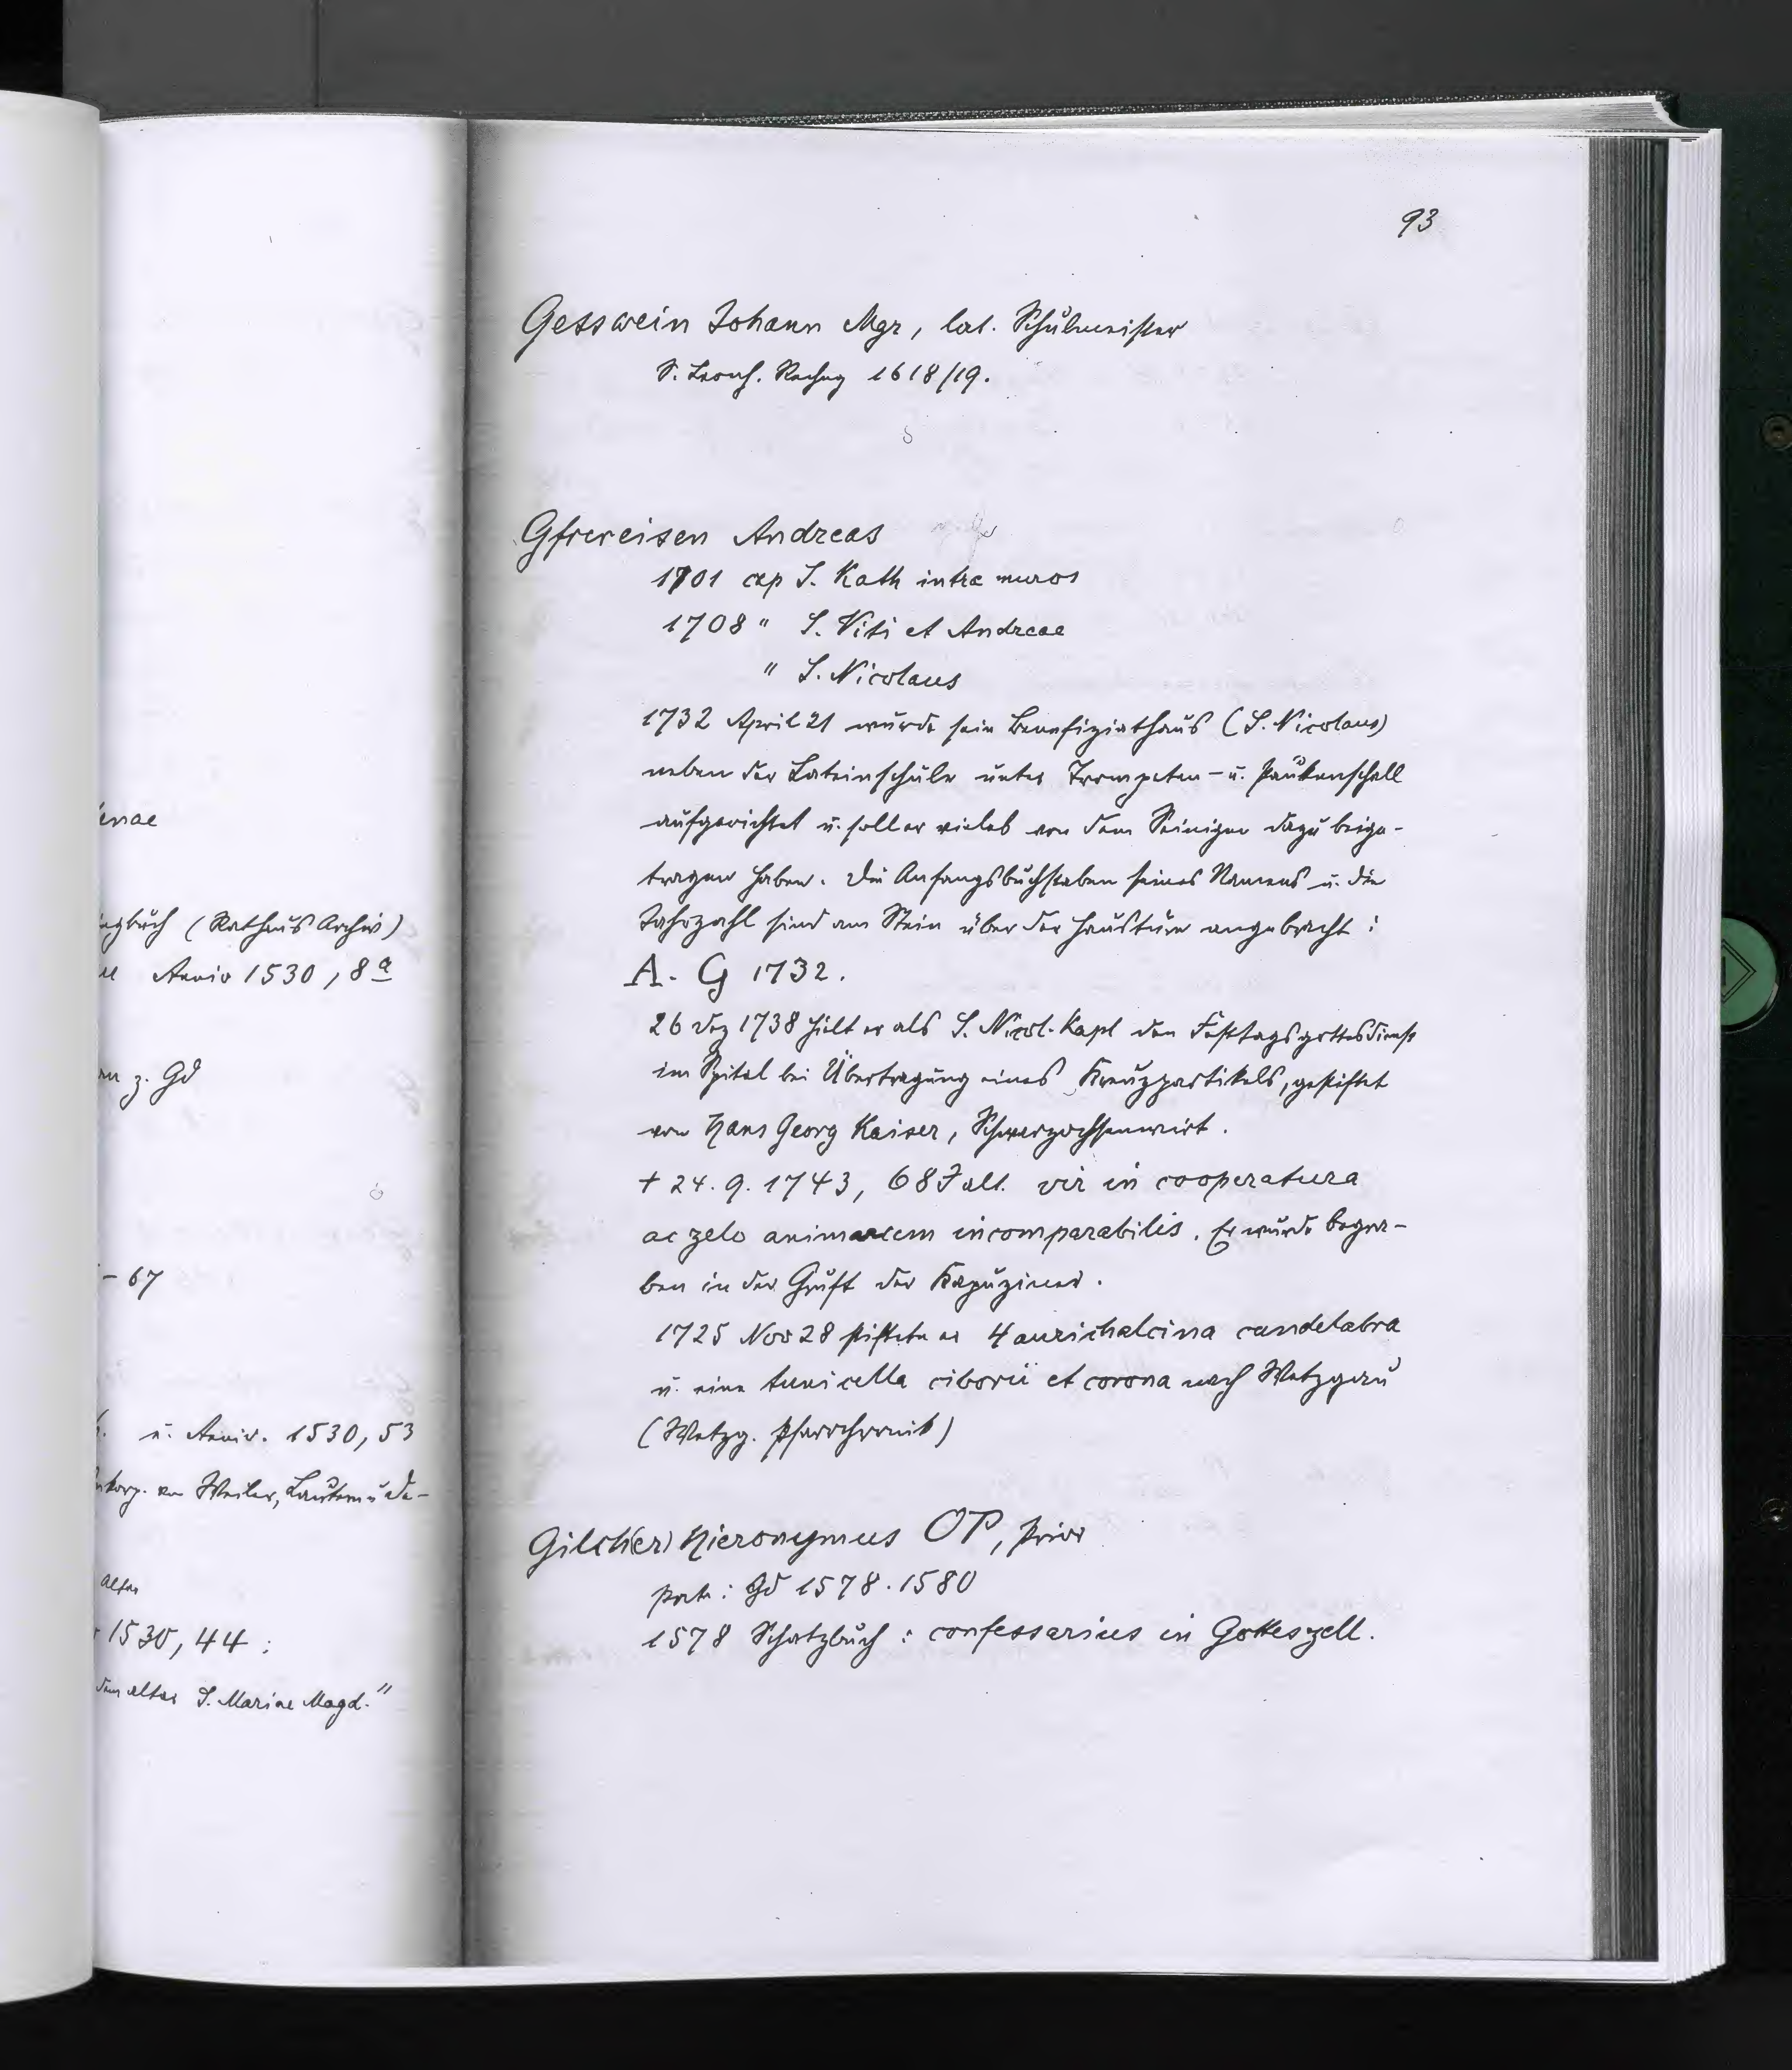 enae
gbuch (Rathaus Archiv)
Anniv 1530, 8a
z. Gd
- 67
u. Anniv. 1530, 53
von Weiler,
Altar
1530, 44 :
dem altar S. Mariae Magd."
93
Gesswein Johann Mgr, lat. Schulmeister
S. Leonh. Rechng 1618/19.
Gfrereisen Andreas
1701 cap S. Kath intra muros
1708 " S. Viti et Andreae
" S. Nicolaus
1732 April 21 wurde sein Benefiziathaus (S. Nicolaus)
neben der Lateinschule unter Trompeten- u. Paukenschall
aufgerichtet u. soll er vieles von dem Seinigen dazu beige-
tragen haben. Die Anfangsbuchstaben seines Namens u. die
Jahrzahl sind am Stein über der Haustüre angebracht :
A. G 1732.
26 Dez 1738 hielt er als S. Nicol. Kapl den Festtagsgottesdienst
im Spital bei Übertragung eines Kreuzpartikels, gestiftet
von Hans Georg Kaiser, Schwarzochsenwirt.
+ 24. 9. 1743, 68 J alt. vir in cooperatura
ac zelo animarum incomparabilis. Er wurde begra-
ben in der Gruft der Kapuziner.
1725 Nov 28 stiftete er 4 aurichalcina candelabra
u. eine tunicella ciborii et corona nach Wetzgau
(Wetzg. Pfarrchronik)
Gilch(er) Hieronymus OP, Prior
Gd 1578. 1580
1578 Schatzbuch : confessarius in Gotteszell.